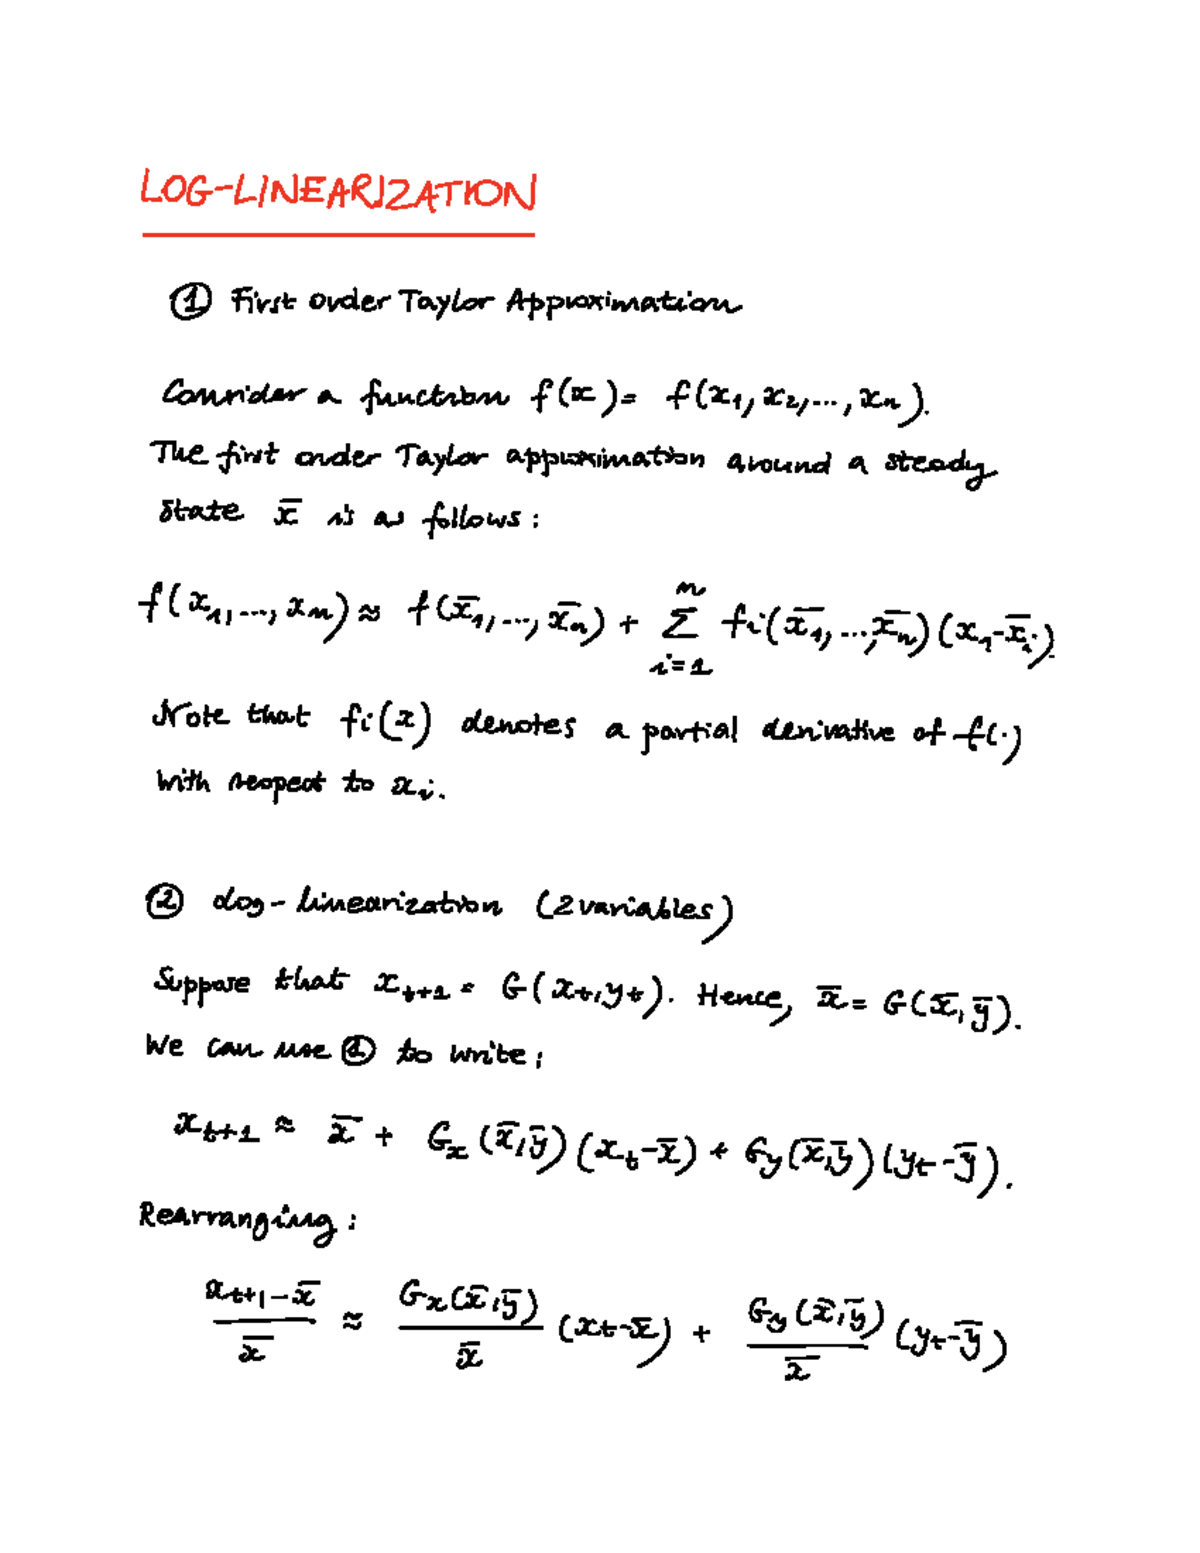 LOG-LINEARIZATION
① First order Taylor Approximation
Consider a function f(x) = f(x₁, x₂, ..., xₙ).
The first order Taylor approximation around a steady
state x̄ is as follows:
f(x₁, ..., xₙ) ≈ f(x̄₁, ..., x̄ₙ) + ∑ᵢ₌₁ⁿ fᵢ(x̄₁, ..., x̄ₙ)(x₁-x̄ᵢ).
Note that fᵢ(x) denotes a partial derivative of f(·)
with respect to xᵢ.
② Log-linearization (2 variables)
Suppose that xₜ₊₁ = G(xₜ, yₜ). Hence, x̄ = G(x̄, ȳ).
We can use ① to write:
xₜ₊₁ ≈ x̄ + Gₓ(x̄, ȳ)(xₜ-x̄) + G_y(x̄, ȳ)(yₜ-ȳ).
Rearranging:
(xₜ₊₁-x̄)/x̄ ≈ Gₓ(x̄, ȳ)/x̄ (xₜ-x̄) + G_y(x̄, ȳ)/x̄ (yₜ-ȳ)